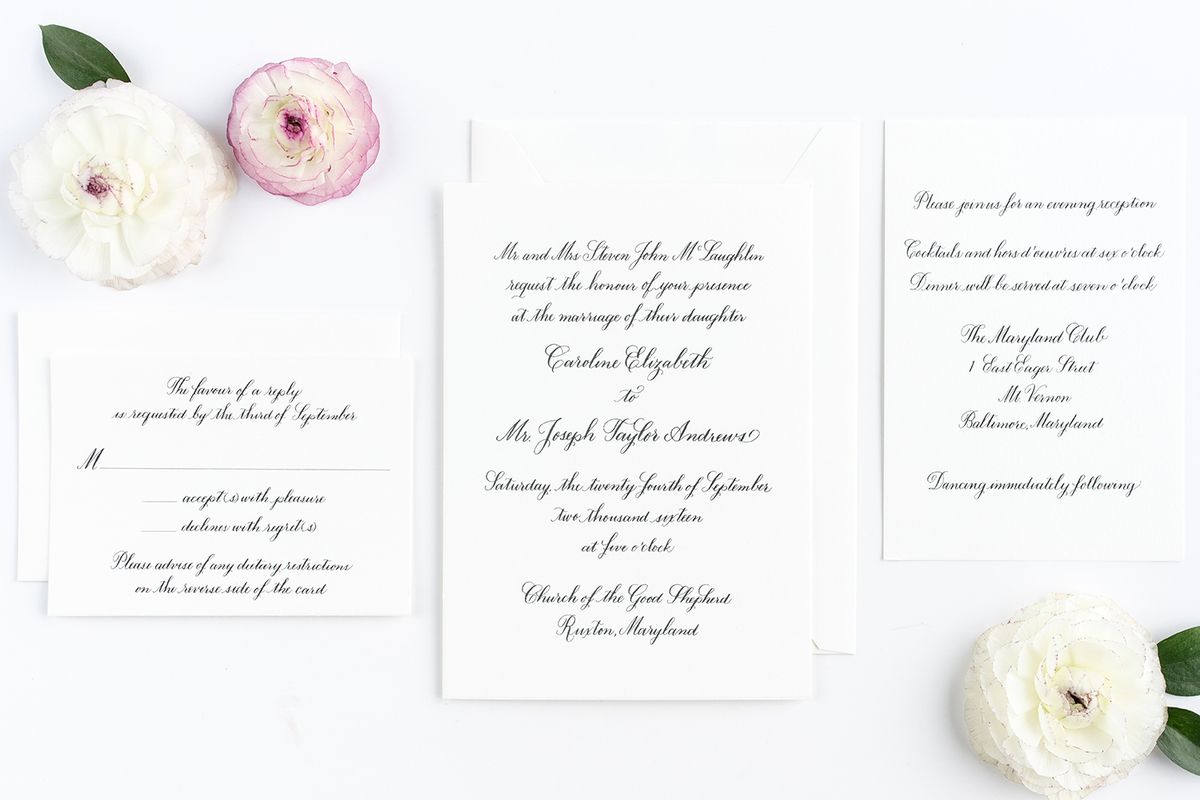 The favour of a reply
is requested by the third of September
M
accept(s) with pleasure
declines with regret(s)
Please advise of any dietary restrictions
on the reverse side of the card
Mr and Mrs Steven John McLaughlin
request the honour of your presence
at the marriage of their daughter
Caroline Elizabeth
to
Mr. Joseph Taylor Andrews
Saturday, the twenty fourth of September
two thousand sixteen
at five o'clock
Church of the Good Shepherd
Ruxton, Maryland
Please join us for an evening reception
Cocktails and hors d'oeuvres at six o'clock
Dinner will be served at seven o'clock
The Maryland Club
1 East Eager Street
Mt Vernon
Baltimore, Maryland
Dancing immediately following